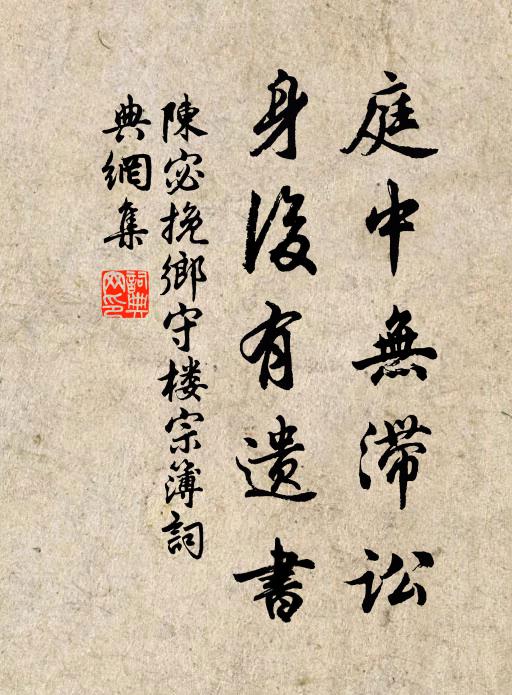 庭中無滯訟
身後有遺書
陳宓挽鄉守楼宗簿詞
典網集
詞典
网印